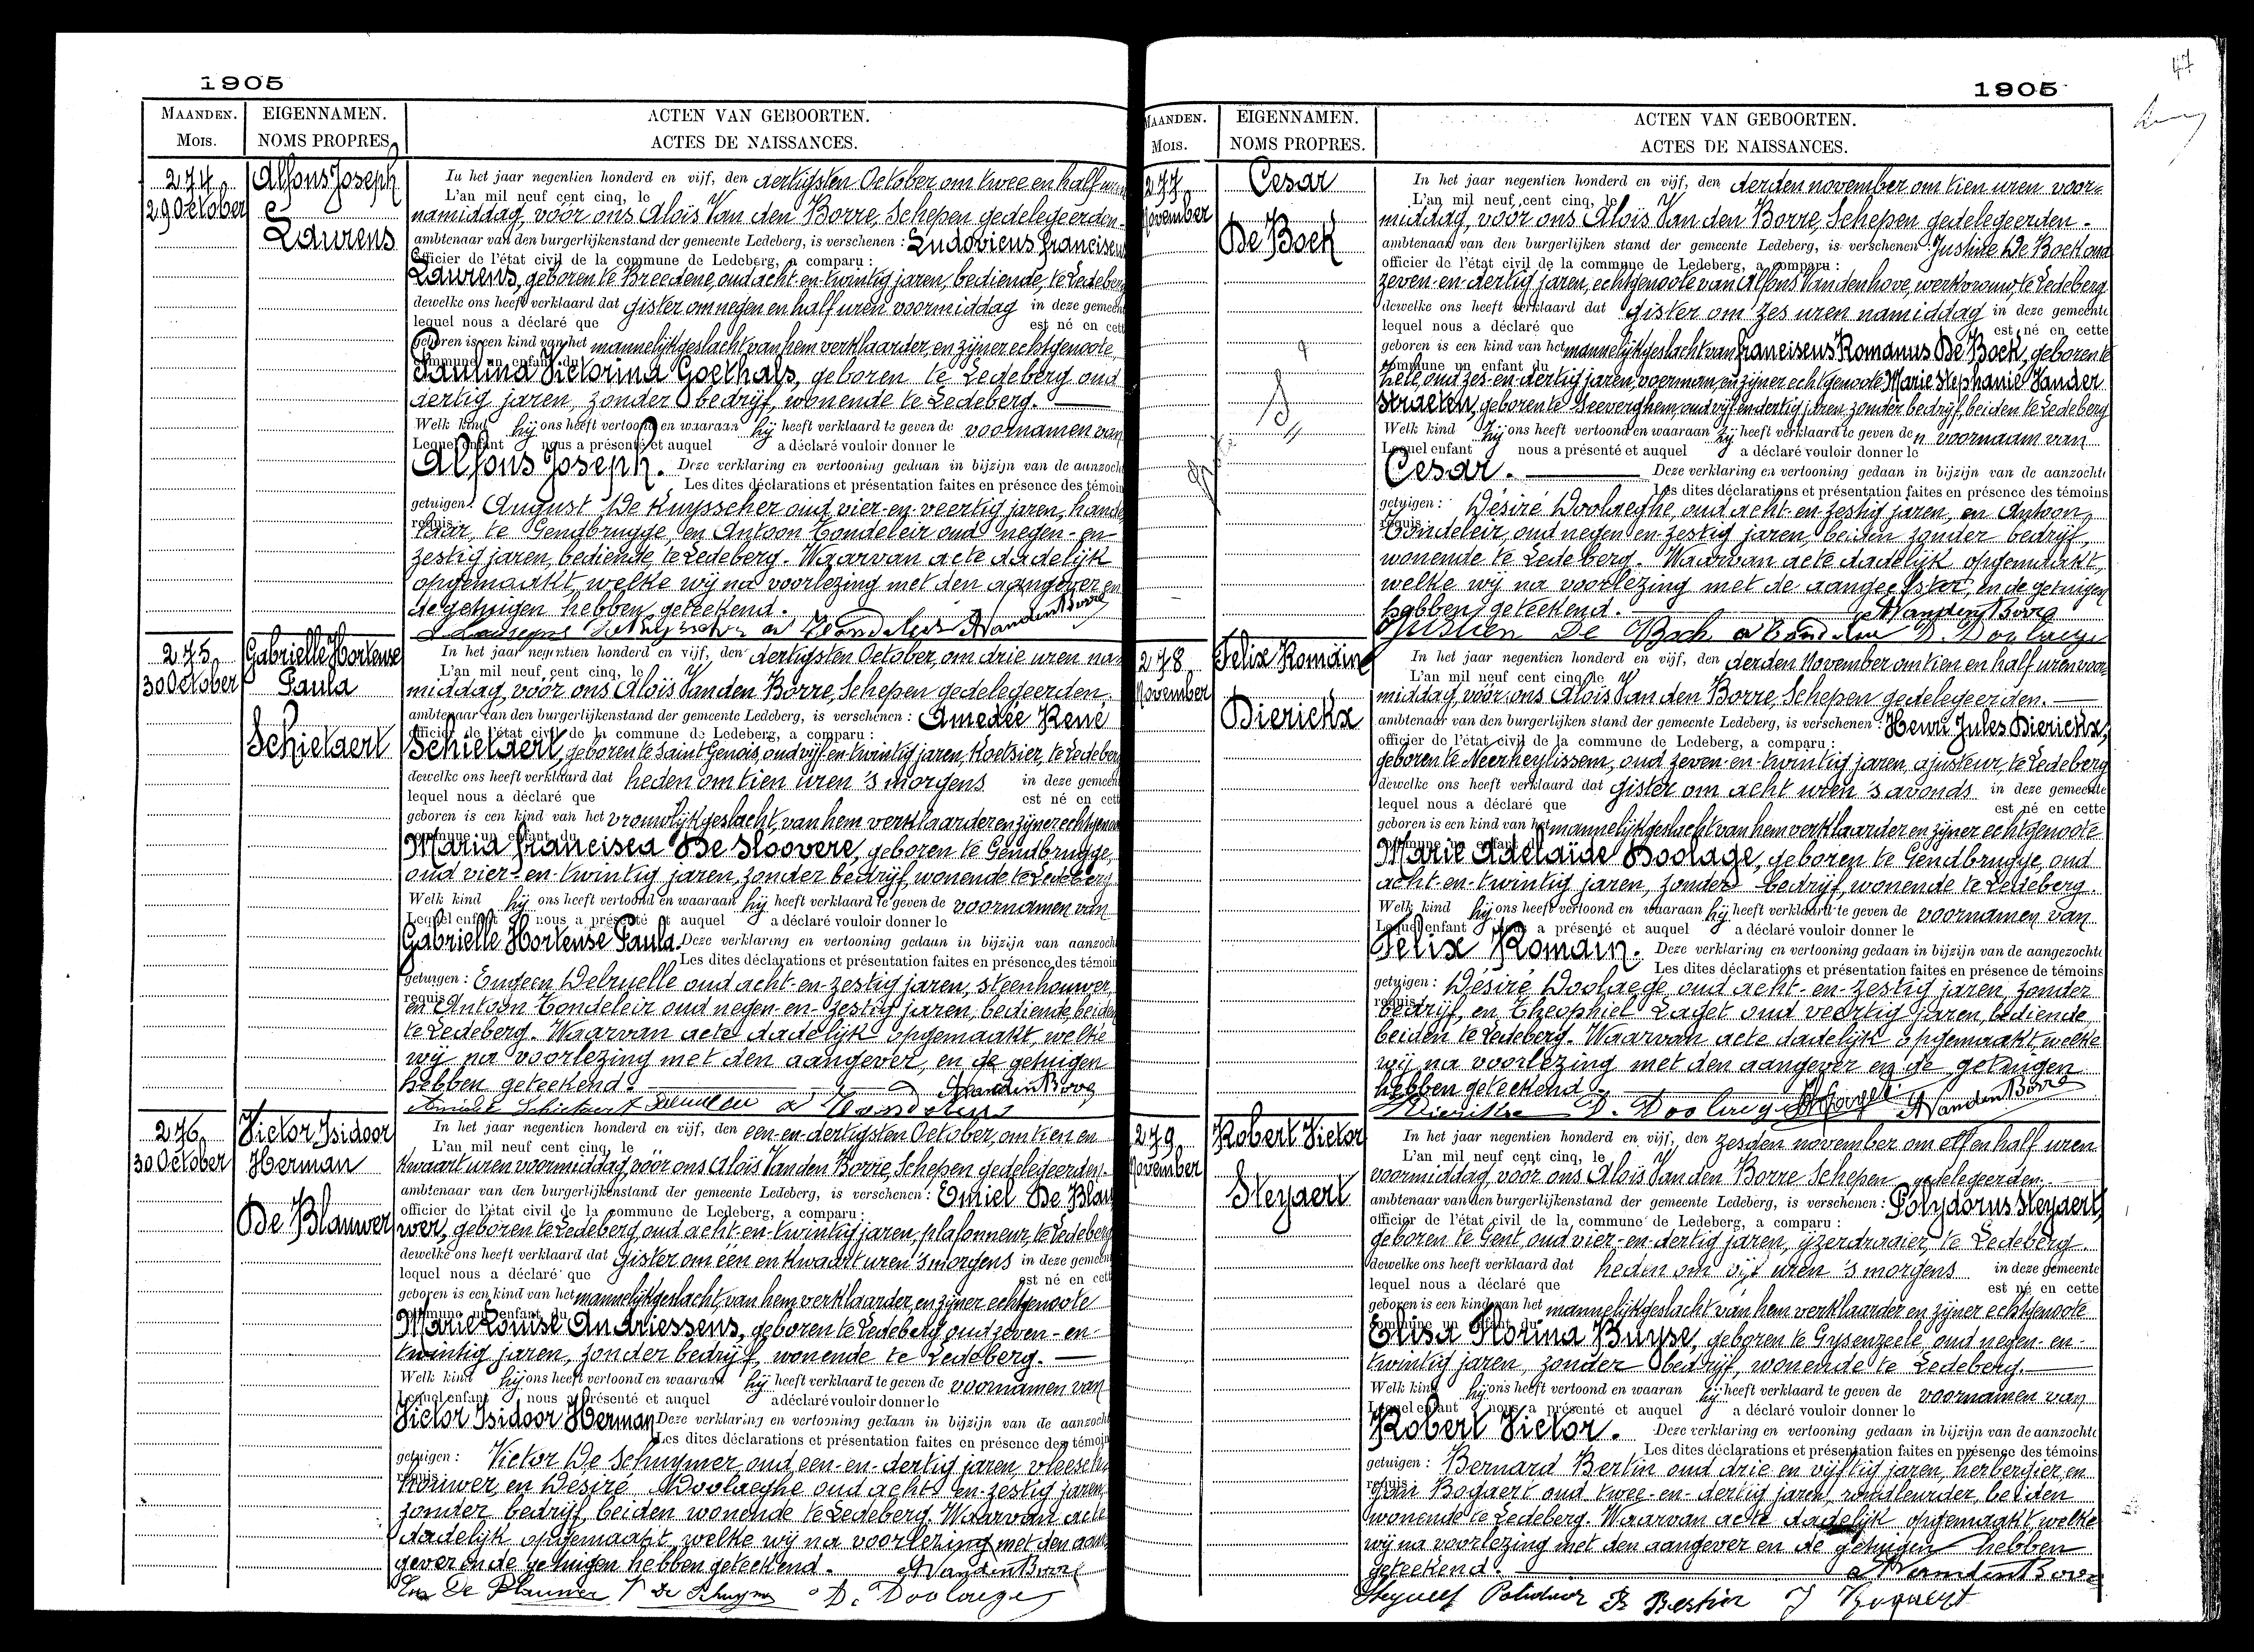 1905
MAANDEN.
Mois.
EIGENNAMEN.
NOMS PROPRES.
ACTEN VAN GEBOORTEN.
ACTES DE NAISSANCES.
274
29 October
Alfons Joseph
Laurens
In het jaar negentien honderd en vijf, den dertigsten October, om twee en half uren
L'an mil neuf cent cinq, le
namiddag, voor ons Aloïs Van den Borre, Schepen gedelegeerden
ambtenaar van den burgerlijkenstand der gemeente Ledeberg, is verschenen : Ludovicus Franciscus
officier de l'état civil de la commune de Ledeberg, a comparu :
Laurens, geboren te Breedene, oud acht-en-twintig jaren, bediende, te Ledeberg
dewelke ons heeft verklaard dat gister om negen en half uren voormiddag in deze gemeen
lequel nous a déclaré que est né en cett
geboren is een kind van het mannelijk geslacht, van hem verklaarder, en zijner echtgenoote,
commune un enfant du
Paulina Victorina Goethals, geboren te Ledeberg oud
dertig jaren, zonder bedrijf, wonende te Ledeberg.
Welk kind hij ons heeft vertoond en waaraan hij heeft verklaard te geven de voornamen van
Lequel enfant nous a présenté et auquel a déclaré vouloir donner le
Alfons Joseph. Deze verklaring en vertooning gedaan in bijzijn van de aanzocht
Les dites déclarations et présentation faites en présence des témoin
getuigen : August De Kuysscher oud vier-en-veertig jaren, hande
requis :
laar, te Gendbrugge, en Antoon Tondeleir oud negen-en-
zestig jaren, bediende, te Ledeberg. Waarvan acte dadelijk
opgemaakt, welke wij na voorlezing met den aangever en
de getuigen hebben geteekend.
A Vanden Borre
275
30 October
Gabrielle Hortense
Paula
Schietaert
In het jaar negentien honderd en vijf, den dertigsten October, om drie uren na-
L'an mil neuf cent cinq, le
middag, vóór ons Aloïs Van den Borre, Schepen gedelegeerden
ambtenaar van den burgerlijkenstand der gemeente Ledeberg, is verschenen : Amedée René
officier de l'état civil de la commune de Ledeberg, a comparu :
Schietaert, geboren te Saint Genois, oud vijf-en-twintig jaren, koetsier, te Ledeberg
dewelke ons heeft verklaard dat heden om tien uren 's morgens in deze gemeen
lequel nous a déclaré que est né en cett
geboren is een kind van het vrouwlijk geslacht, van hem verklaarder en zijner echtgenoote
commune un enfant du
Maria Francisca De Sloovere, geboren te Gendbrugge,
oud vier-en-twintig jaren, zonder bedrijf, wonende te Ledeberg
Welk kind hij ons heeft vertoond en waaraan hij heeft verklaard te geven de voornamen van
Lequel enfant nous a présenté et auquel a déclaré vouloir donner le
Gabrielle Hortense Paula. Deze verklaring en vertooning gedaan in bijzijn van aanzocht
Les dites déclarations et présentation faites en présence des témoin
getuigen : Eugeen Delruelle oud acht-en-zestig jaren, steenhouwer,
requis
en Antoon Tondeleir oud negen-en-zestig jaren, bediende, beiden
te Ledeberg. Waarvan acte dadelijk opgemaakt, welke
wij na voorlezing met den aangever, en de getuigen
hebben geteekend.
A Vanden Borre
Amedée Schietaert
276
30 October
Victor Isidoor
Herman
De Blauwer
In het jaar negentien honderd en vijf, den een-en-dertigsten October, om tien en
L'an mil neuf cent cinq, le
kwaart uren voormiddag, vóór ons Aloïs Van den Borre, Schepen gedelegeerden
ambtenaar van den burgerlijkenstand der gemeente Ledeberg, is verschenen : Emiel De Blau
officier de l'état civil de la commune de Ledeberg, a comparu :
wer, geboren te Ledeberg, oud acht-en-twintig jaren, plafonneur, te Ledeberg
dewelke ons heeft verklaard dat gister om één en kwaart uren 's morgens in deze gemeen
lequel nous a déclaré que est né en cett
geboren is een kind van het mannelijk geslacht, van hem verklaarder, en zijner echtgenoote
commune un enfant du
Marie Louise Andriessens, geboren te Ledeberg oud zeven-en-
twintig jaren, zonder bedrijf, wonende te Ledeberg.
Welk kind hij ons heeft vertoond en waaraan hij heeft verklaard te geven de voornamen van
Lequel enfant nous a présenté et auquel a déclaré vouloir donner le
Victor Isidoor Herman Deze verklaring en vertooning gedaan in bijzijn van de aanzocht
Les dites déclarations et présentation faites en présence des témoin
getuigen : Victor De Schuymer, oud een-en-dertig jaren, vleesch
houwer, en Desiré Doolaeghe oud acht-en-zestig jaren,
zonder bedrijf, beiden wonende te Ledeberg. Waarvan acte
dadelijk opgemaakt, welke wij na voorlezing met den aan
gever en de getuigen hebben geteekend. A Vanden Borre
De Blauwer V De Schuymer D. Doolaege
1905
47
MAANDEN.
Mois.
EIGENNAMEN.
NOMS PROPRES.
ACTEN VAN GEBOORTEN.
ACTES DE NAISSANCES.
277
November
Cesar
De Bock
In het jaar negentien honderd en vijf, den derden november om tien uren voor-
L'an mil neuf cent cinq, le
middag, vóór ons Aloïs Van den Borre, Schepen gedelegeerden
ambtenaar van den burgerlijken stand der gemeente Ledeberg, is verschenen : Justine De Bock oud
officier de l'état civil de la commune de Ledeberg, a comparu :
zeven-en-dertig jaren, echtgenoote van Alfons Vandenhove, werkvrouw, te Ledeberg
dewelke ons heeft verklaard dat gister om zes uren namiddag in deze gemeente
lequel nous a déclaré que est né en cette
geboren is een kind van het mannelijk geslacht van Franciscus Romanus De Bock, geboren te
commune un enfant du
oud zes-en-dertig jaren, voerman, en zijner echtgenoote Marie Stephanie Vander
Straeten, geboren te Seeverghem, oud vijf en dertig jaren, zonder bedrijf, beiden te Ledeberg
Welk kind zij ons heeft vertoond en waaraan zij heeft verklaard te geven den voornaam van
Lequel enfant nous a présenté et auquel a déclaré vouloir donner le
Cesar. Deze verklaring en vertooning gedaan in bijzijn van de aanzochte
Les dites déclarations et présentation faites en présence des témoins
getuigen : Désiré Doolaeghe, oud acht-en-zestig jaren, en Antoon,
requis :
Tondeleir, oud negen en zestig jaren, beiden zonder bedrijf,
wonende te Ledeberg. Waarvan acte dadelijk opgemaakt,
welke wij na voorlezing met de aangeefster, en de getuigen
hebben geteekend. A Vanden Borre
Justien De Bock D. Doolaege
278
November
Felix Romain
Dierickx
In het jaar negentien honderd en vijf, den derden November om tien en half uren voor-
L'an mil neuf cent cinq, le
middag, vóór ons Aloïs Van den Borre, Schepen gedelegeerden.
ambtenaar van den burgerlijken stand der gemeente Ledeberg, is verschenen : Henri Jules Dierickx,
officier de l'état civil de la commune de Ledeberg, a comparu :
geboren te Neerheylissem, oud zeven-en-twintig jaren, ajusteur, te Ledeberg
dewelke ons heeft verklaard dat gister om acht uren 's avonds in deze gemeente
lequel nous a déclaré que est né en cette
geboren is een kind van het mannelijk geslacht van hem verklaarder en zijner echtgenoote
commune un enfant du
Marie Adelaïde Doolage, geboren te Gendbrugge, oud
acht-en-twintig jaren, zonder bedrijf, wonende te Ledeberg.
Welk kind hij ons heeft vertoond en waaraan hij heeft verklaard te geven de voornamen van
Lequel enfant nous a présenté et auquel a déclaré vouloir donner le
Felix Romain. Deze verklaring en vertooning gedaan in bijzijn van de aangezochte
Les dites déclarations et présentation faites en présence de témoins
getuigen : Désiré Doolaege oud acht-en-zestig jaren, zonder
requis
bedrijf, en Theophiel Laget oud veertig jaren, bediende,
beiden te Ledeberg. Waarvan acte dadelijk opgemaakt, welke
wij na voorlezing met den aangever en de getuigen
hebben geteekend.
D. Doolaege A Vanden Borre
279
November
Robert Victor
Steyaert
In het jaar negentien honderd en vijf, den zesden november om elf en half uren
L'an mil neuf cent cinq, le
voormiddag, voor ons Aloïs Van den Borre Schepen gedelegeerden.
ambtenaar van den burgerlijkenstand der gemeente Ledeberg, is verschenen : Polydorus Steyaert,
officier de l'état civil de la commune de Ledeberg, a comparu :
geboren te Gent, oud vier-en-dertig jaren, ijzerdraaier, te Ledeberg
dewelke ons heeft verklaard dat heden om vijf uren 's morgens in deze gemeente
lequel nous a déclaré que est né en cette
geboren is een kind van het mannelijk geslacht van hem verklaarder en zijner echtgenoote
commune un enfant du
Elisa Florina Buyse, geboren te Gysenzeele, oud negen-en-
twintig jaren, zonder bedrijf, wonende te Ledeberg.
Welk kind hij ons heeft vertoond en waaran hij heeft verklaard te geven de voornamen van
Lequel enfant nous a présenté et auquel a déclaré vouloir donner le
Robert Victor. Deze verklaring en vertooning gedaan in bijzijn van de aanzochte
Les dites déclarations et présentation faites en présence des témoins
getuigen : Bernard Bertin oud drie en vijftig jaren, herbergier, en
requis :
Bogaert oud twee-en-dertig jaren, rondleurder, beiden
wonende te Ledeberg. Waarvan acte dadelijk opgemaakt, welke
wij na voorlezing met den aangever en de getuigen hebben
geteekend. A Vanden Borre